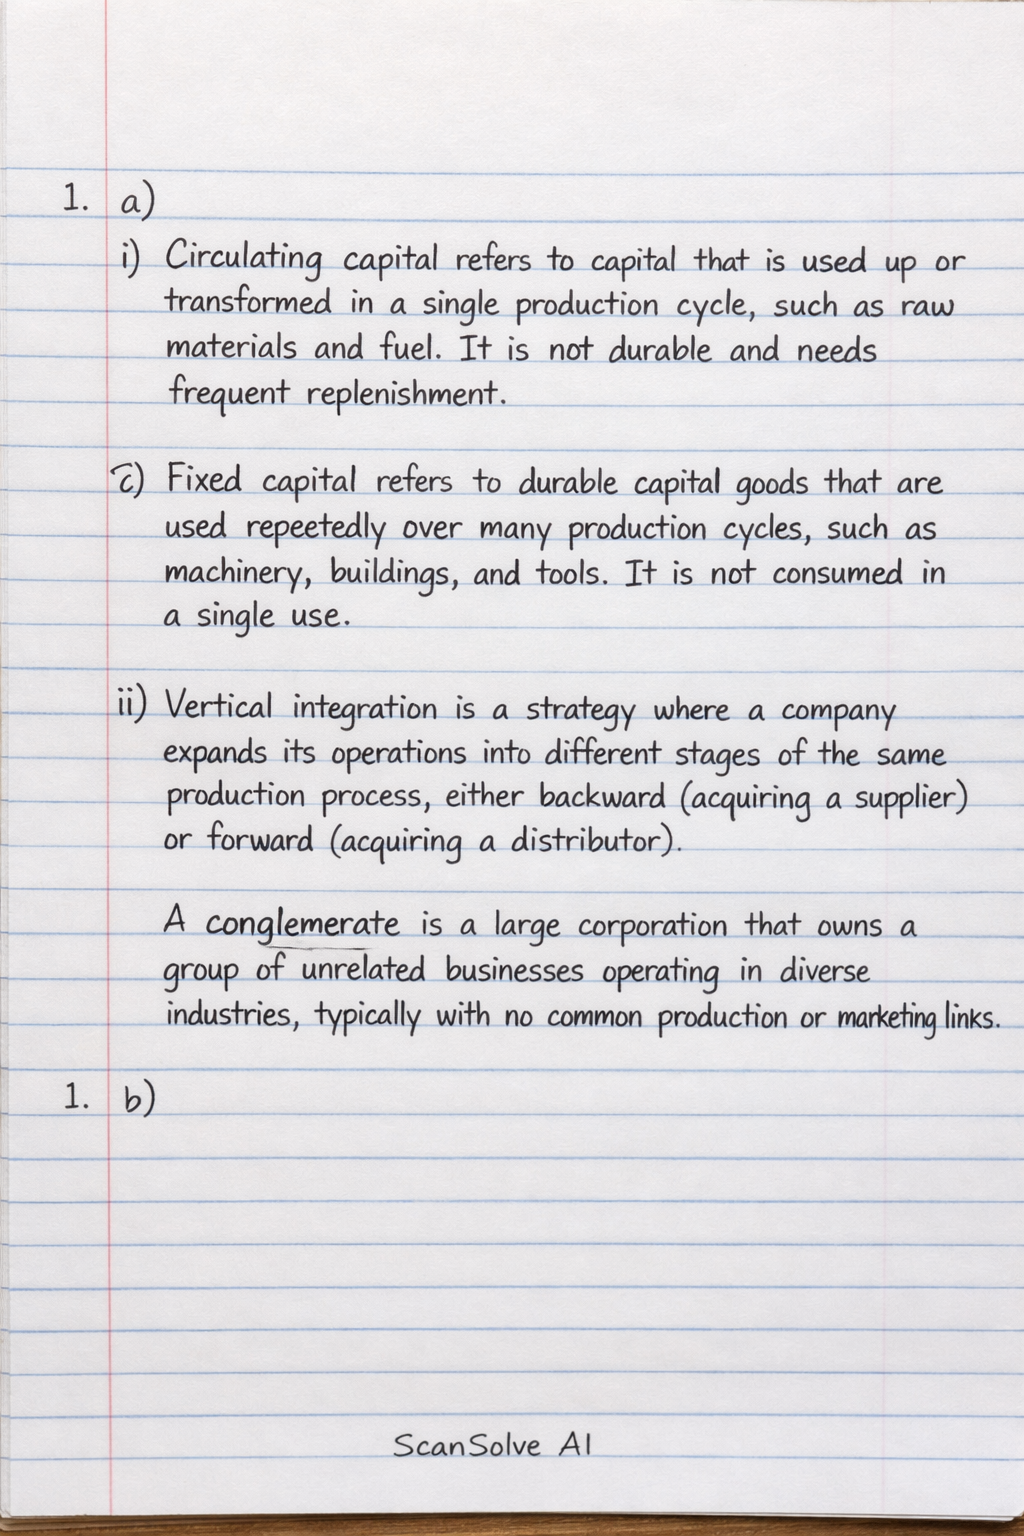 1. a)
i) Circulating capital refers to capital that is used up or
transformed in a single production cycle, such as raw
materials and fuel. It is not durable and needs
frequent replenishment.
c) Fixed capital refers to durable capital goods that are
used repeetedly over many production cycles, such as
machinery, buildings, and tools. It is not consumed in
a single use.
ii) Vertical integration is a strategy where a company
expands its operations into different stages of the same
production process, either backward (acquiring a supplier)
or forward (acquiring a distributor).
A conglemerate is a large corporation that owns a
group of unrelated businesses operating in diverse
industries, typically with no common production or marketing links.
1. b)
ScanSolve AI